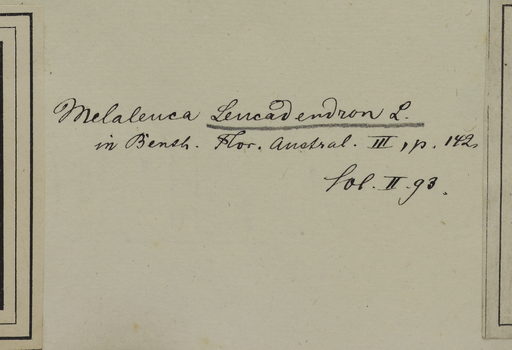 Melaleuca Leucadendron L.
in Benth. Flor. Austral. III, p. 142.
Sol. II. 93.